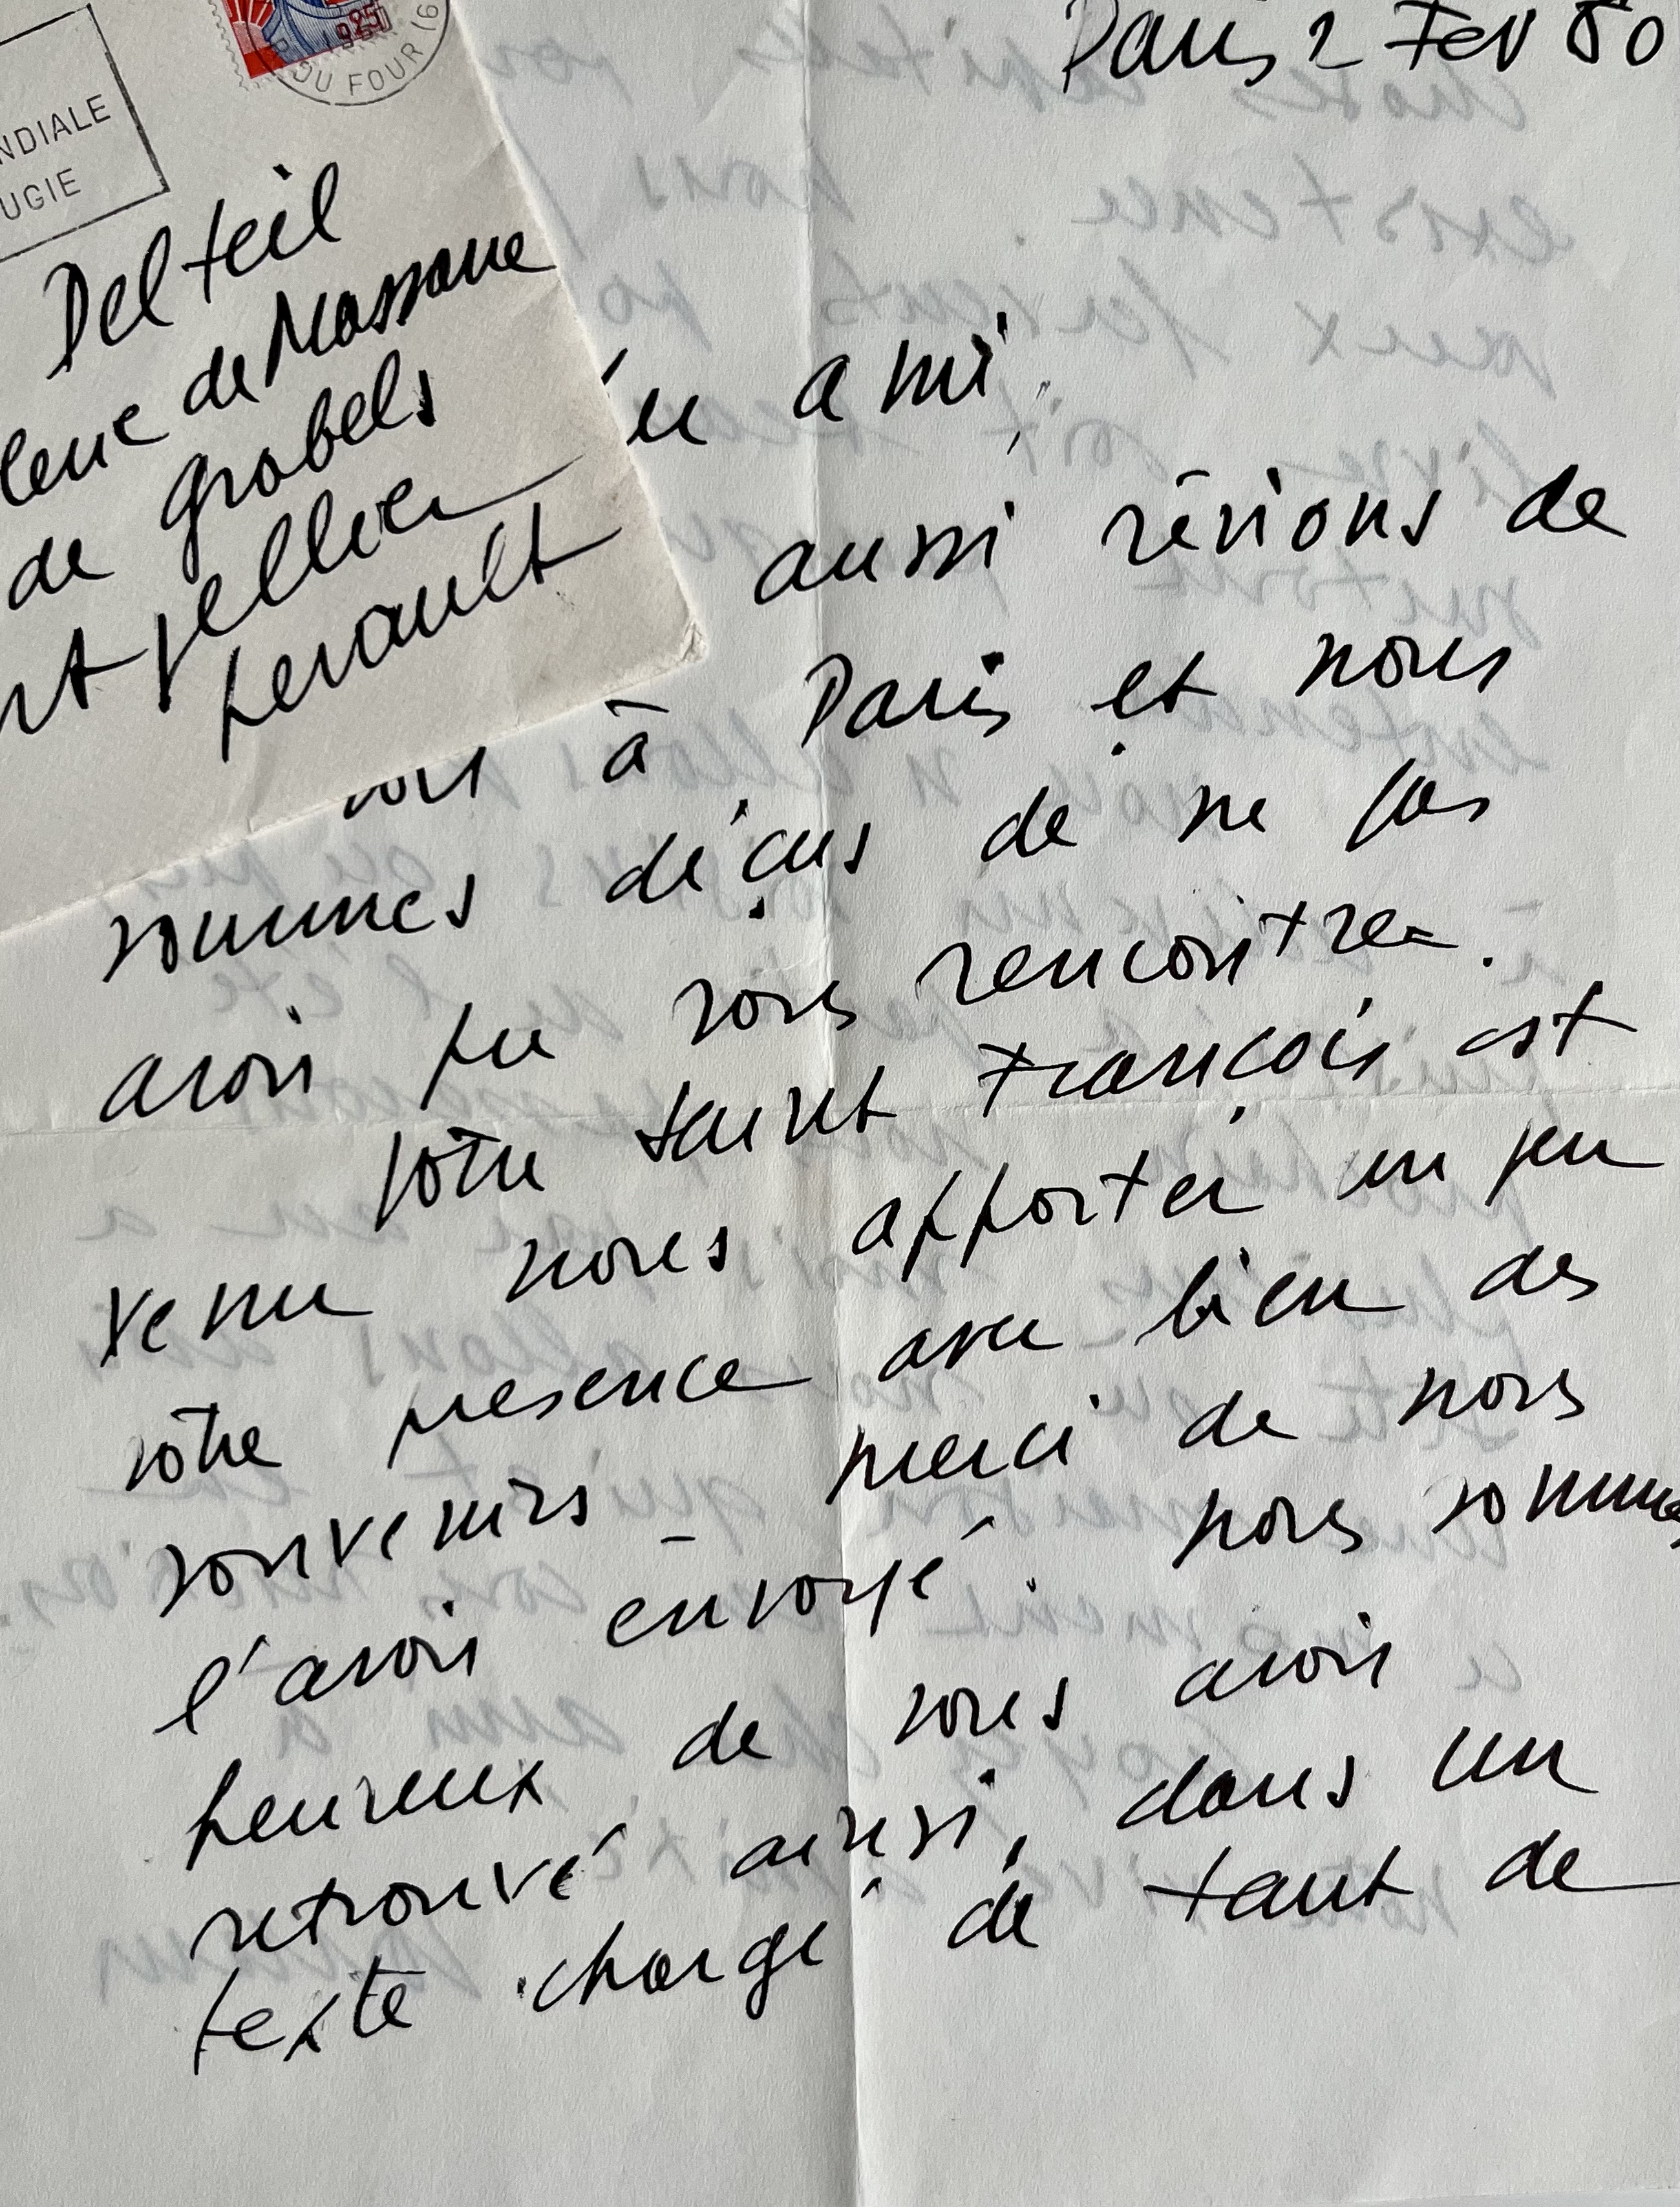 NDIALE
UGIE
0,25
DU FOUR (6
Delteil
de Massane
de Grabels
nt pellier
Herault
Paris 2 Fev 60
ami,
aussi rêvions de
à Paris et nous
sommes déçus de ne pas
avoir pu vous rencontrer.
Votre Saint François est
venu nous apporter un peu
votre presence avec bien des
souvenirs merci de nous
l'avoir envoyé. Nous sommes
heureux de vous avoir
retrouvé ainsi, dans un
texte chargé de tant de